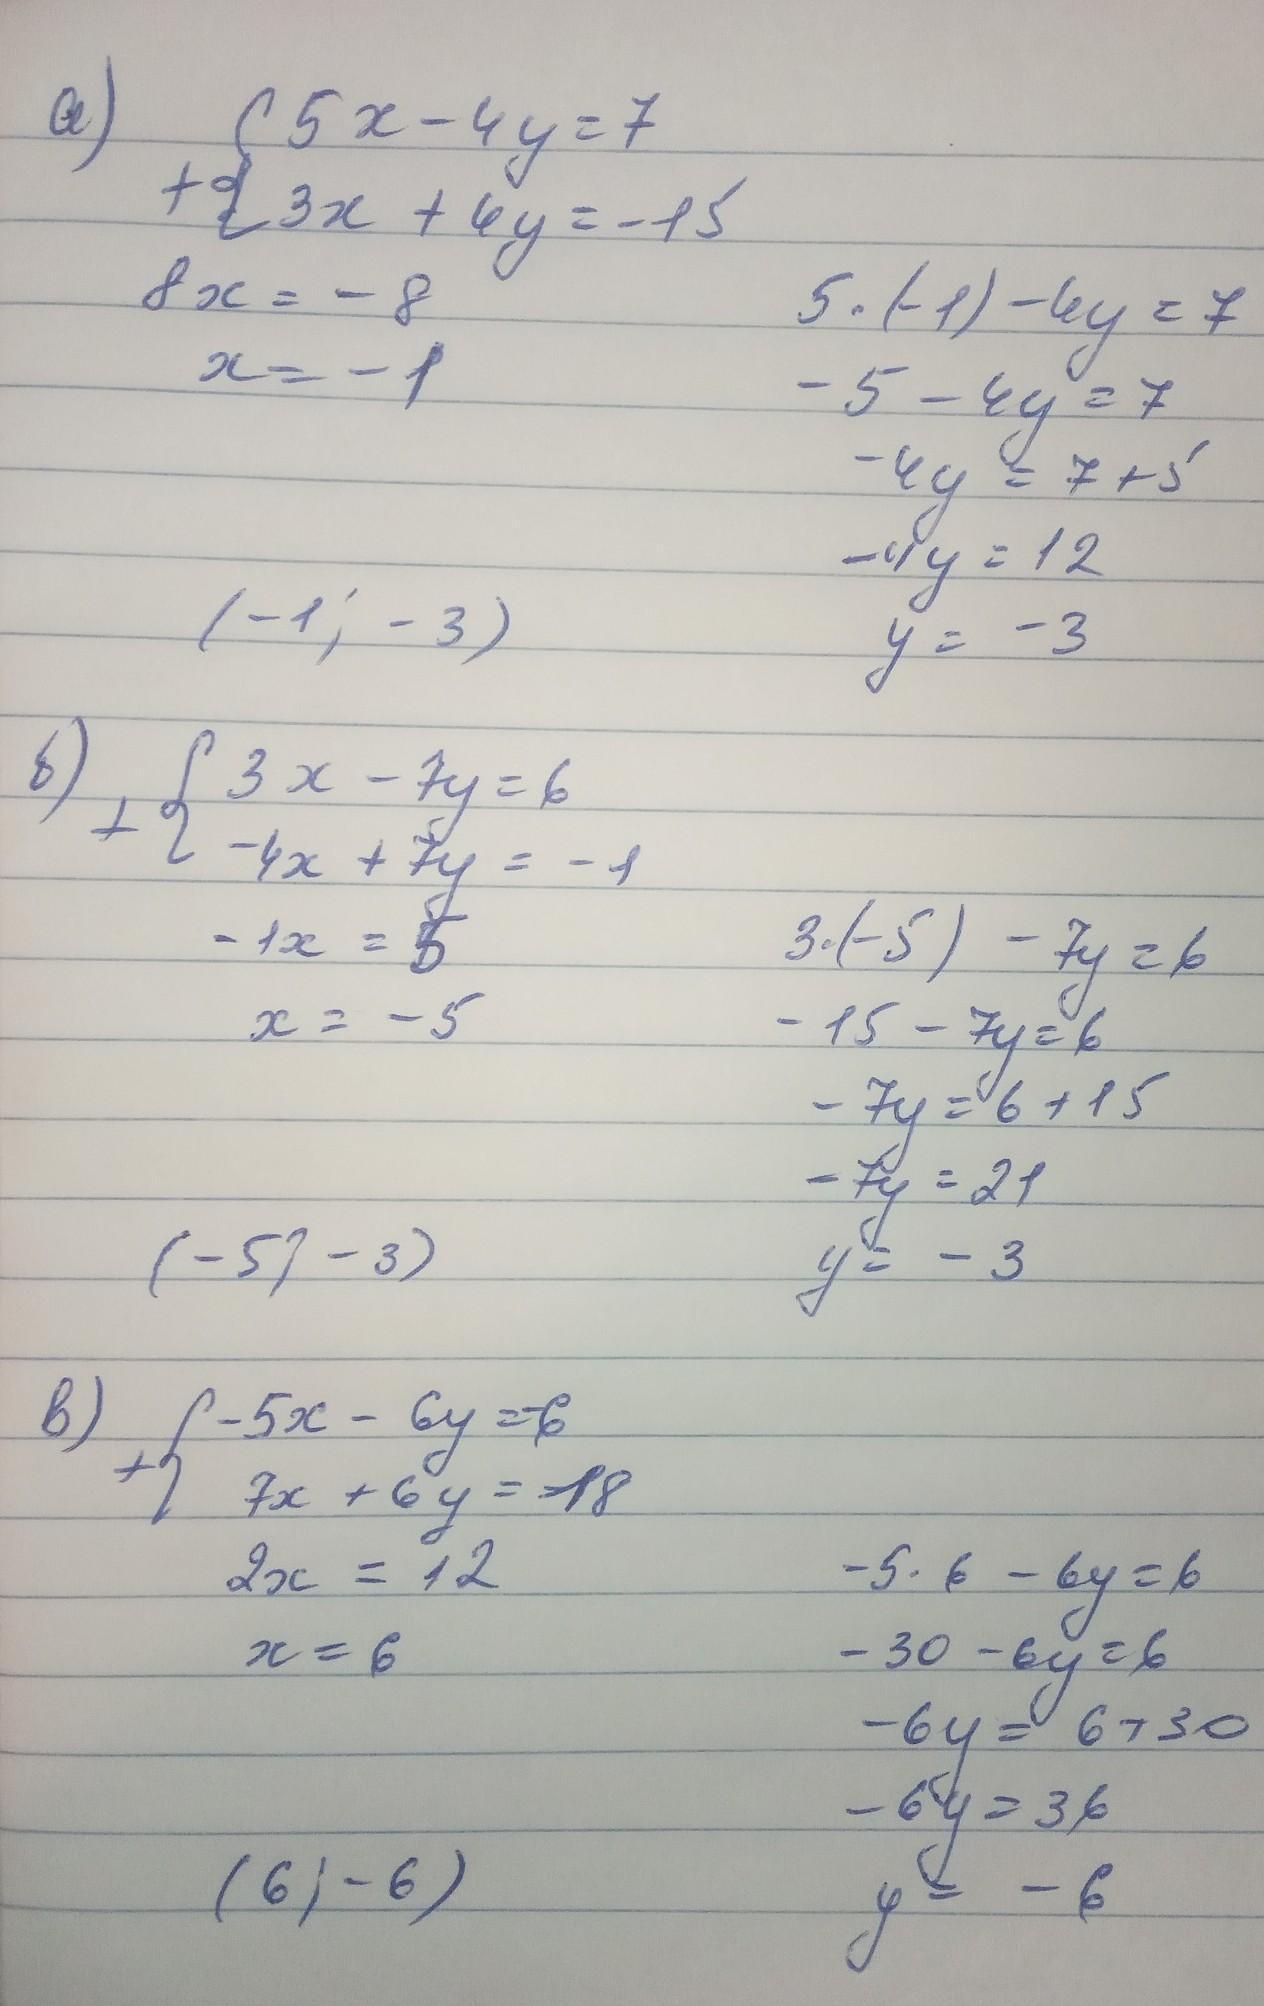 а) { 5x - 4y = 7
+ { 3x + 4y = -15
8x = -8
x = -1
5·(-1) - 4y = 7
-5 - 4y = 7
-4y = 7 + 5
-4y = 12
y = -3
(-1; -3)
б) { 3x - 7y = 6
+ { -4x + 7y = -1
-1x = 5
x = -5
3·(-5) - 7y = 6
-15 - 7y = 6
-7y = 6 + 15
-7y = 21
y = -3
(-5; -3)
в) { -5x - 6y = -6
+ { 7x + 6y = -18
2x = 12
x = 6
-5·6 - 6y = 6
-30 - 6y = 6
-6y = 6 + 30
-6y = 36
y = -6
(6; -6)